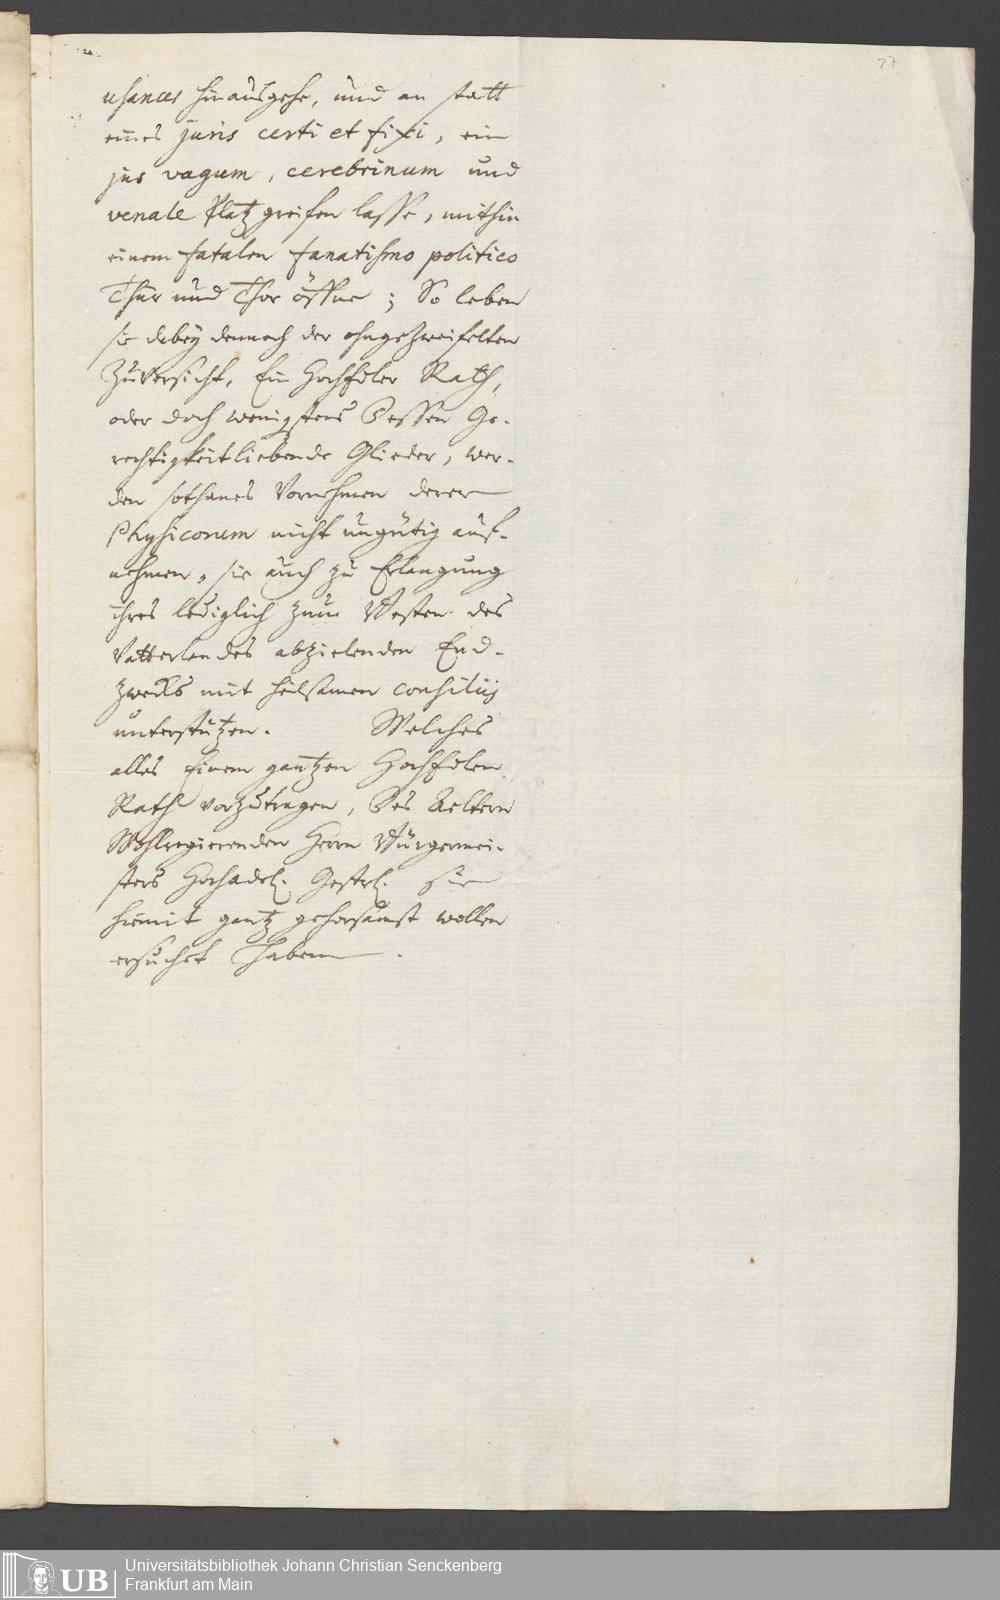 27
usances hinausgehe, und an statt
eines juris certi et fixi, ein
jus vagum, cerebrinum und
venale Platz greifen lasse, mithin
einem fatalen fanatismo politico
Thür und Thor öffne; So leben
sie dabey dennoch der ohngezweifelten
Zuversicht, Ein HochEdler Rath,
oder doch wenigstens Dessen Ge-
rechtigkeitliebende Glieder, wer-
den sothanes Vornehmen derer
Physicorum nicht ungütig auf-
nehmen, sie auch zu Erlangung
ihres lediglich zum Besten des
Vatterlandes abzielenden End-
zwecks mit heilsamen consiliis
unterstützen. Welches
alles Einem gantzen HochEdlen
Rath vorzutragen, Des Aeltern
Wohlregierenden Herrn Bürgermei-
sters Hochadel. Gestrl. Sie
hiemit gantz gehorsamst wollen
ersucht haben.
UB
Universitätsbibliothek Johann Christian Senckenberg
Frankfurt am Main